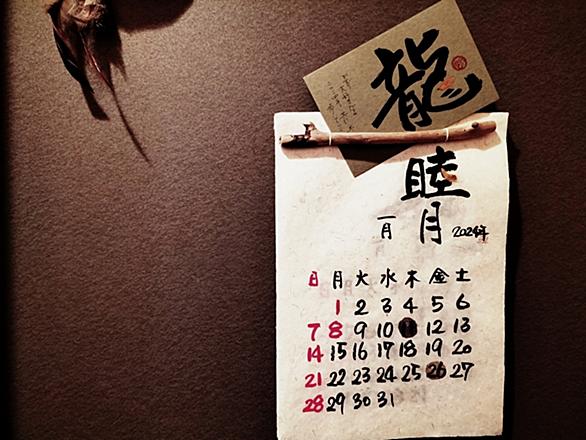 龍
睦月
一月
2024年
日 月 火 水 木 金 土
1 2 3 4 5 6
7 8 9 10 11 12 13
14 15 16 17 18 19 20
21 22 23 24 25 26 27
28 29 30 31